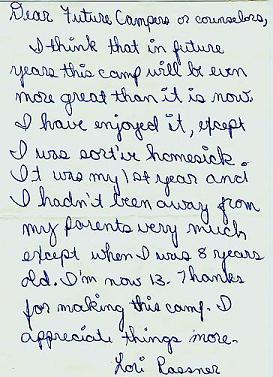 Dear Future Campers or counselors,
I think that in future
years this camp will be even
more great than it is now.
I have enjoyed it, except
I was sort've homesick.
It was my 1st year and
I hadn't been away from
my parents very much
except when I was 8 years
old. I'm now 13. Thanks
for making this camp. I
appreciate things more.
Lori Rassner